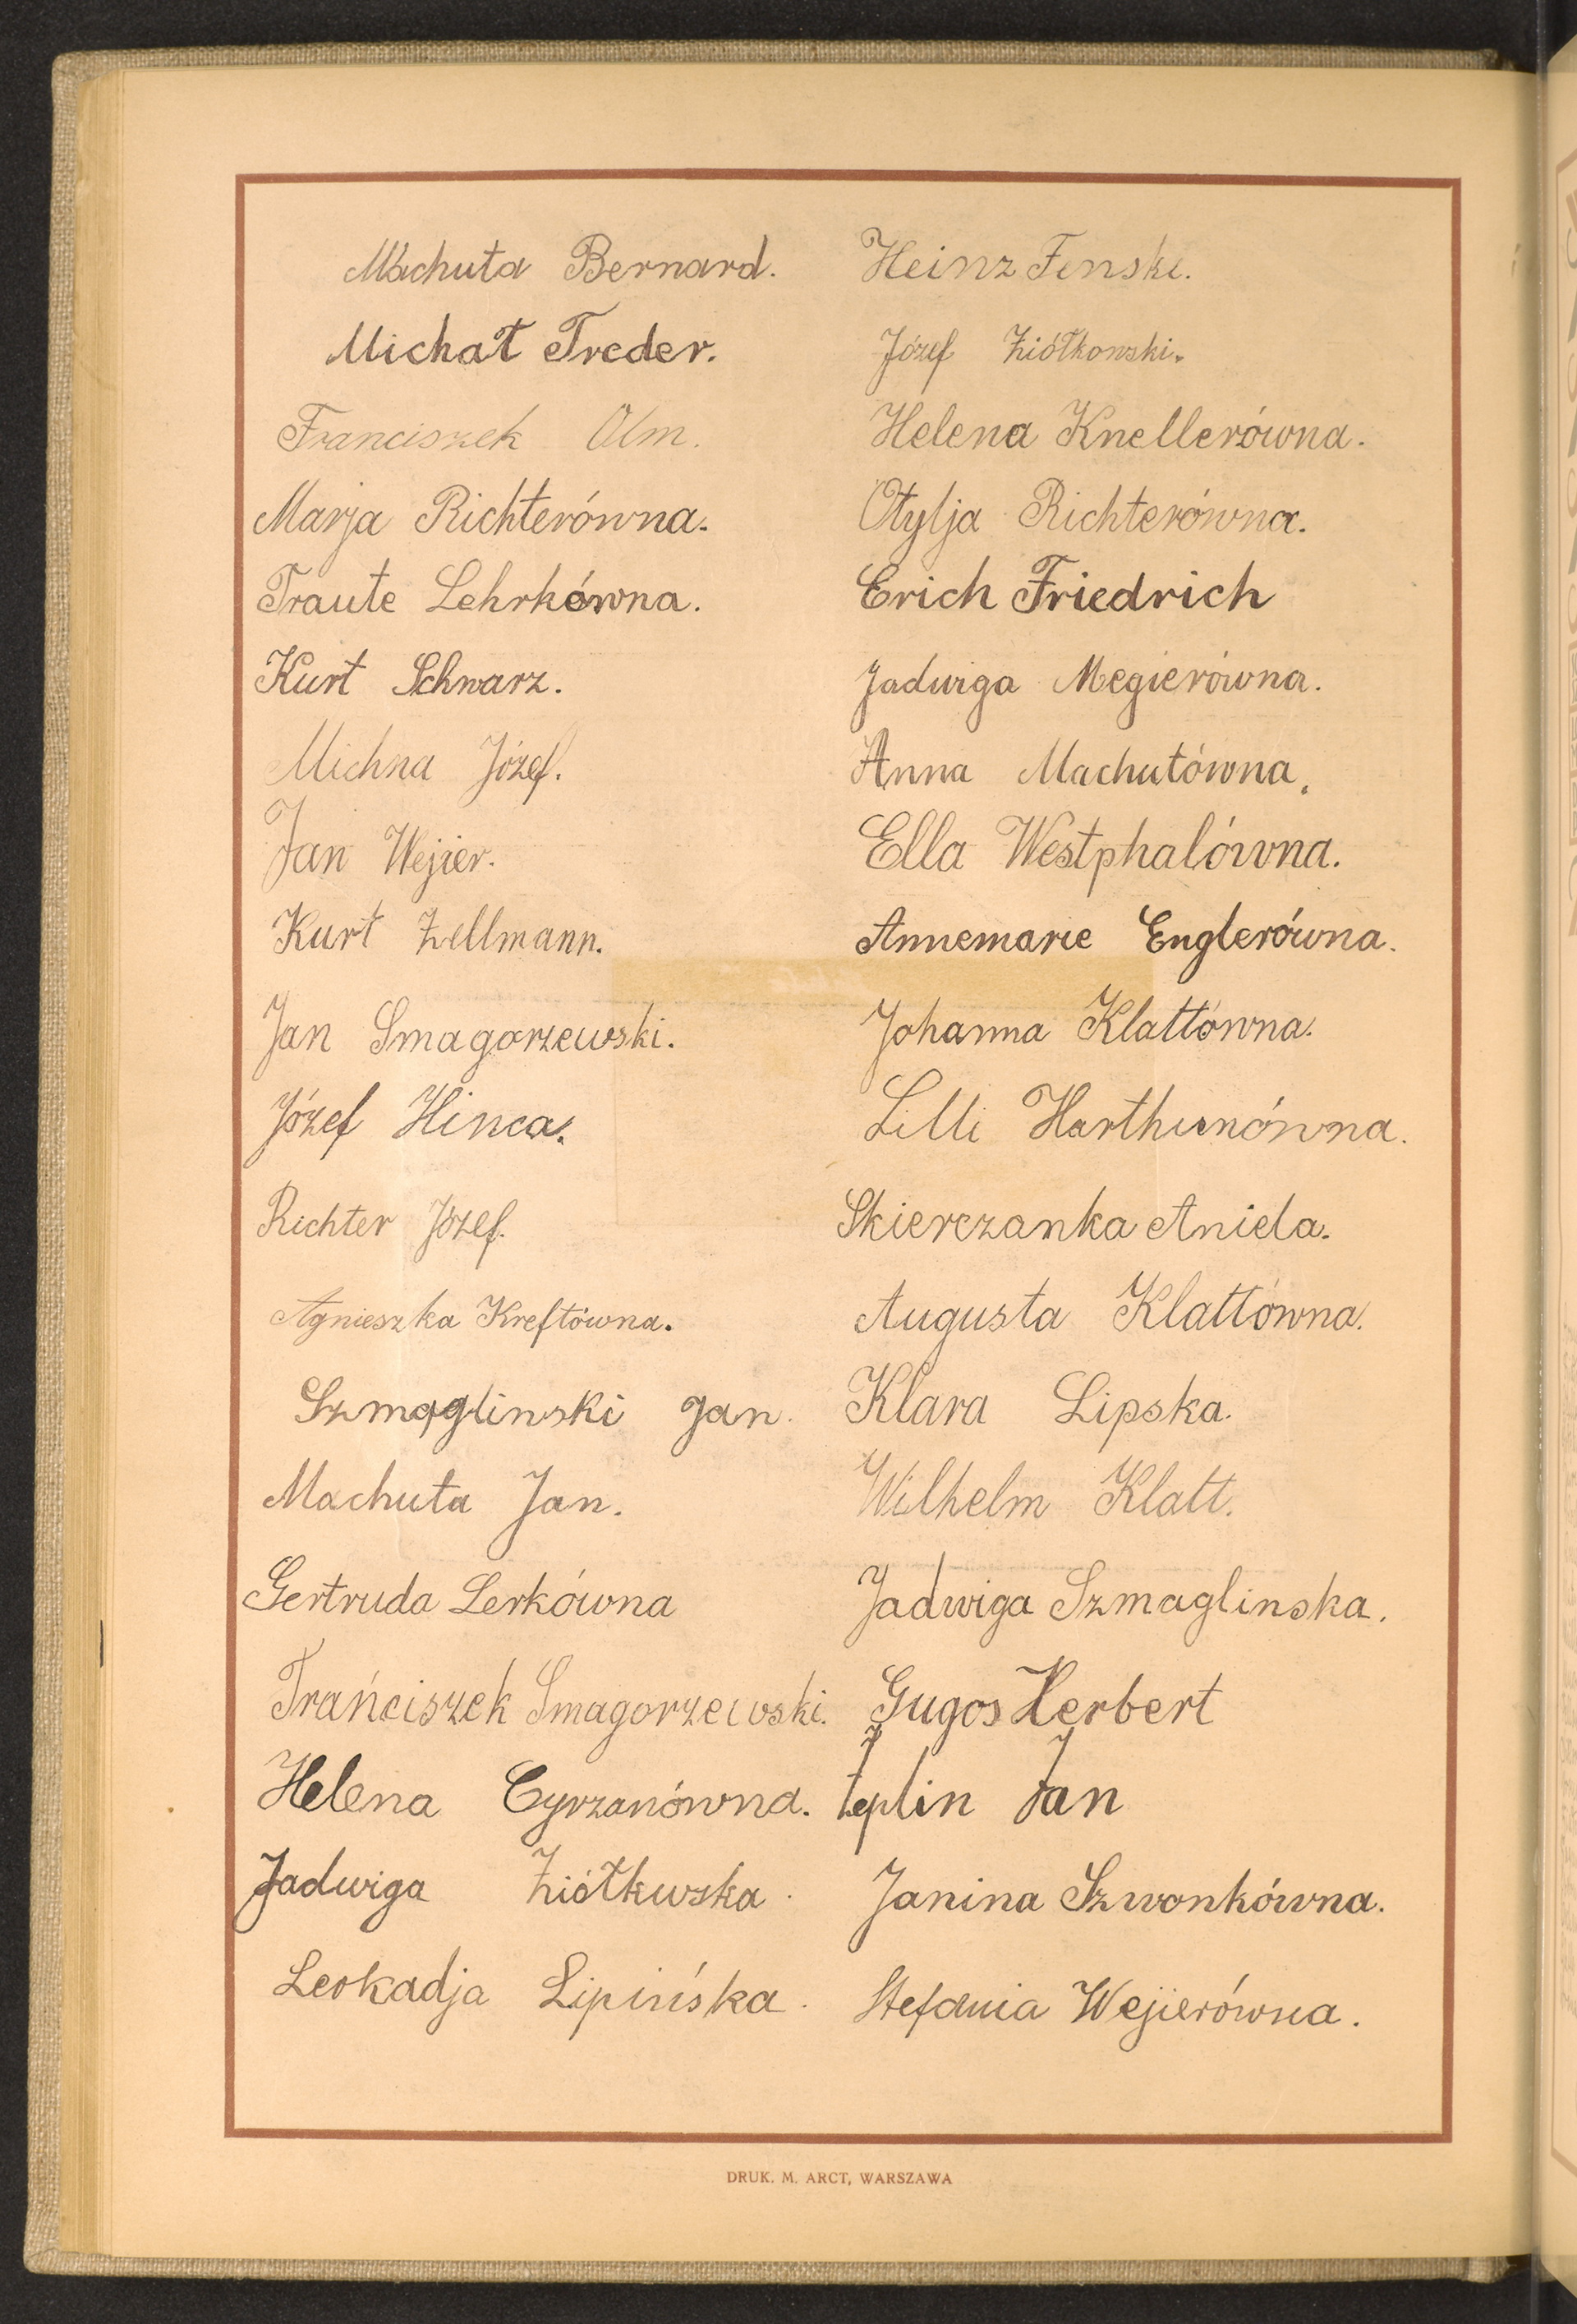 Machuta Bernard.
Michał Treder.
Franciszek Olm.
Marja Richterówna.
Traute Lehrkówna.
Kurt Schwarz.
Michna Józef.
Jan Wejier.
Kurt Zellmann.
Jan Smagorzewski.
Józef Hinca.
Richter Józef.
Agnieszka Kreftówna.
Szmaglinski Jan.
Machuta Jan.
Gertruda Lerkówna
Frańciszek Smagorzewski.
Helena Cyrzanówna.
Jadwiga Ziółkwska.
Leokadja Lipińska.
Heinz Fenske.
Józef Ziółkowski.
Helena Knellerówna.
Otylja Richterówna.
Erich Friedrich
Jadwiga Megierówna.
Anna Machutówna.
Ella Westphalówna.
Annemarie Englerówna.
Johanna Klattówna.
Lilli Harthunówna.
Skierczanka Aniela.
Augusta Klattówna.
Klara Lipska.
Wilhelm Klatt.
Jadwiga Szmaglinska.
Gugos Herbert
Jan
Janina Szwonkówna.
Stefania Wejierówna.
DRUK. M. ARCT, WARSZAWA